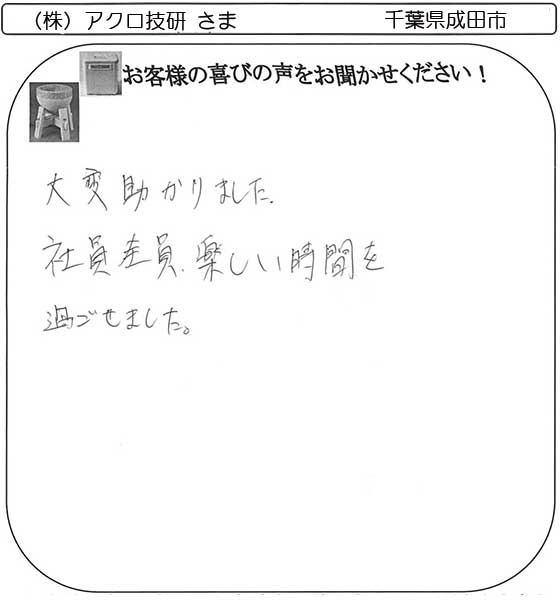 （株）アクロ技研 さま 千葉県成田市
お客様の喜びの声をお聞かせください！
大変助かりました.
社員全員、楽しい時間を
過ごせました。